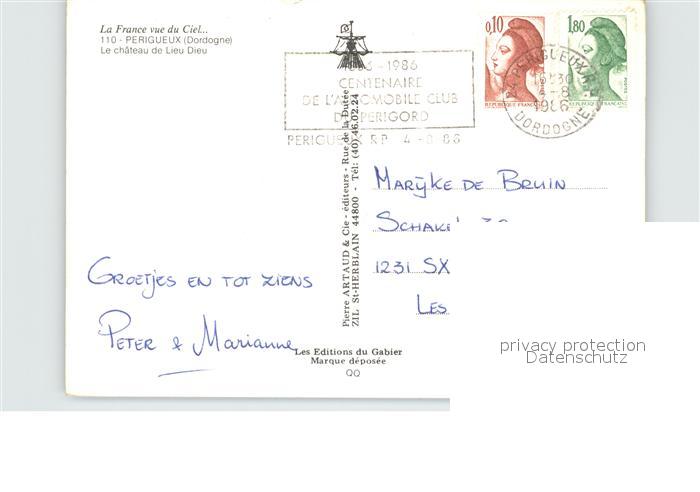 La France vue du Ciel...
110 - PERIGUEUX (Dordogne)
Le château de Lieu Dieu
- 1986
CENTENAIRE
DE L'AUTOMOBILE CLUB
DU PERIGORD
PERIGUEUX R.P. 4-8-86
0,10
REPUBLIQUE FRANÇAISE
1,80
REPUBLIQUE FRANÇAISE
PERIGUEUX R.P.
16H30
1986
DORDOGNE
Pierre ARTAUD & Cie - éditeurs - Rue de la Dutée
ZIL St-HERBLAIN 44800 - Tél: (40) 46.02.24
MARIJKE DE BRUIN
1231 SX
LES
GROETJES EN TOT ZIENS
PETER & MARIANNE
Les Editions du Gabier
Marque déposée
privacy protection
Datenschutz